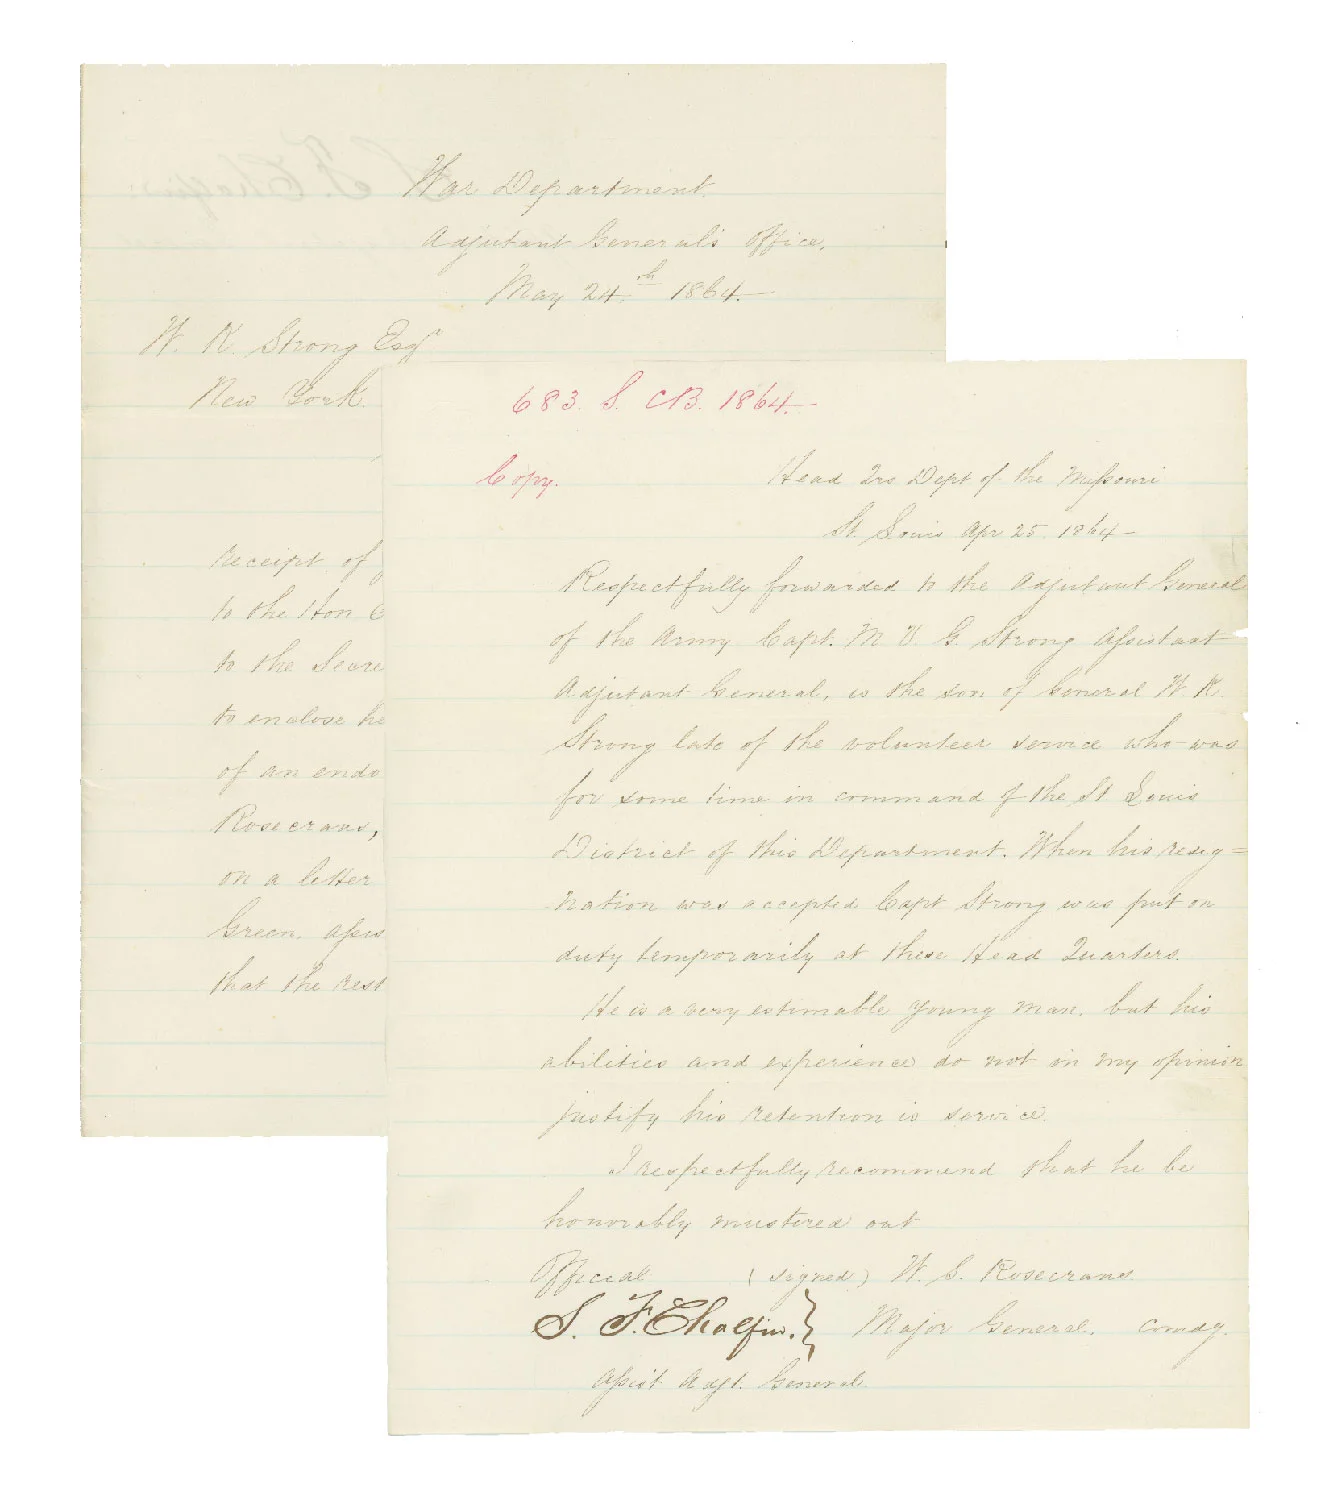 War Department.
Adjutant General's Office,
May 24th 1864.
W. K. Strong Esqr
New York.
receipt of
to the Hon
to the Secre
to enclose he
of an endo
Rosecrans,
on a letter
Green. Assis
that the rest
683. S. CB. 1864.
Copy.
Head Qrs Dept of the Missouri
St. Louis Apr 25. 1864
Respectfully forwarded to the Adjutant General
of the Army Capt. M. V. G. Strong Assistant
Adjutant General, is the son of General W. K.
Strong late of the volunteer service who was
for some time in command of the St Louis
District of this Department. When his resig=
nation was accepted Capt Strong was put on
duty temporarily at these Head Quarters.
He is a very estimable young man. but his
abilities and experience do not in my opinion
justify his retention is service.
I respectfully recommend that he be
honorably mustered out
Official (signed) W. S. Rosecrans
S. F. Chalfin. } Major General. Comdg.
Assist Adjt. General.